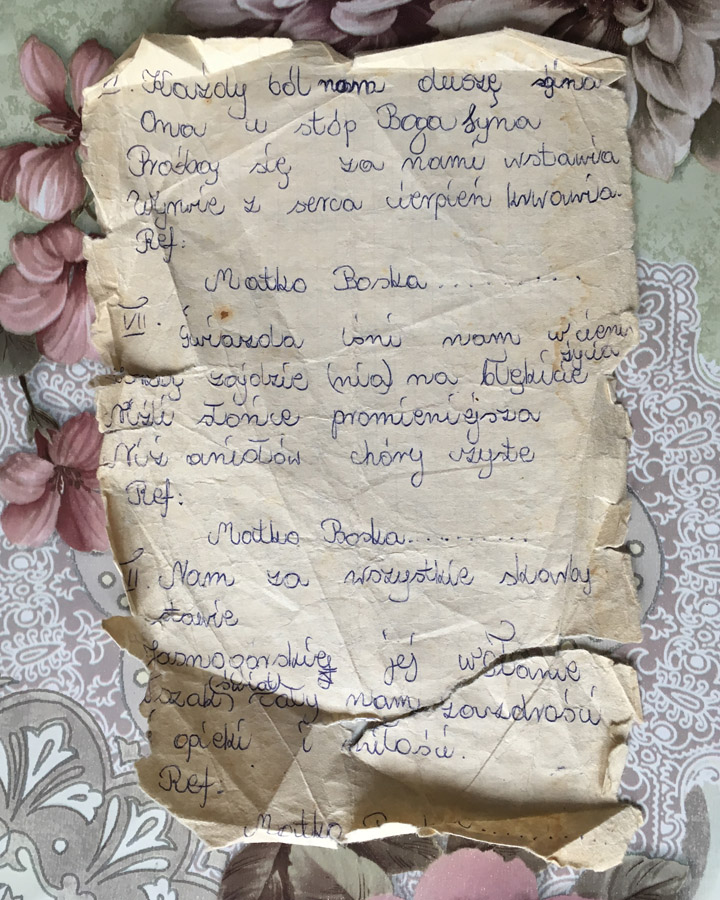 Każdy ból nam duszę zgina
Ona u stóp Boga Syna
Prośbą się za nami wstawia
Wyrwie z serca cierpień krwawia.
Ref:
Matko Boska..........
VII. Gwiazda lśni nam w cieni
życia
zajdzie (nią) na błękicie
Niźli słońce promieniejsza
Niż aniołów chóry czyste
Ref:
Matko Boska..........
II. Nam za wszystkie skarby
stanie
Jasnogórskiej jej
(świat)
cały nam zazdrości
opieki i miłości.
Ref:
Matko